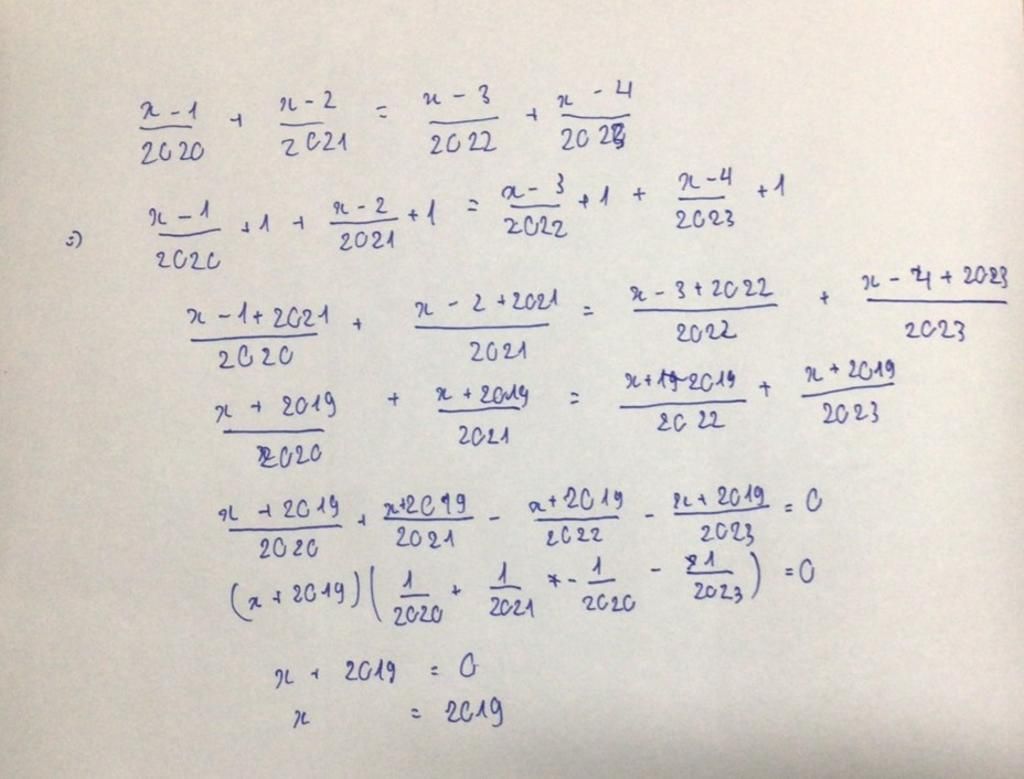 x-1/2020 + x-2/2021 = x-3/2022 + x-4/2023
=) x-1/2020 +1 + x-2/2021 +1 = x-3/2022 +1 + x-4/2023 +1
x-1+2021/2020 + x-2+2021/2021 = x-3+2022/2022 + x-4+2023/2023
x+2019/2020 + x+2019/2021 = x+2019/2022 + x+2019/2023
x+2019/2020 + x+2019/2021 - x+2019/2022 - x+2019/2023 = 0
(x+2019)(1/2020 + 1/2021 - 1/2020 - 1/2023) = 0
x + 2019 = 0
x = 2019